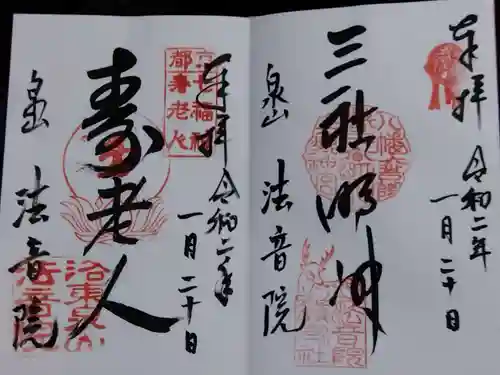 奉拝
令和二年
一月二十日
三社明神
泉山 法音院
奉拝
令和二年
一月二十日
寿老人
泉山 法音院
京七福神
都寿老人
洛東泉山
法音院